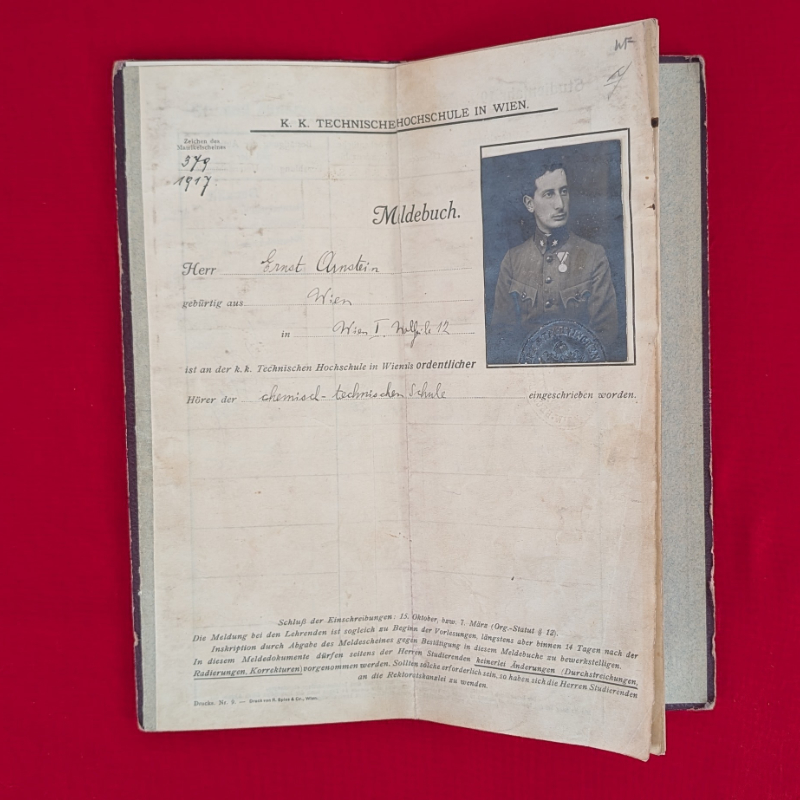 K. K. TECHNISCHE HOCHSCHULE IN WIEN.
Zeichen des
Meldescheines
379
1917.
Meldebuch.
Herr Ernst Arnstein
gebürtig aus Wien
in Wien I. 12
ist an der k.k. Technischen Hochschule in Wien als ordentlicher
Hörer der chemisch-technischen Schule eingeschrieben worden.
Schluß der Einschreibungen: 15. Oktober, bzw. 7. März (Org.-Statut § 12).
Die Meldung bei den Lehrenden ist sogleich zu Beginn der Vorlesungen, längstens aber binnen 14 Tagen nach der
Inskription durch Abgabe des Meldescheines gegen Bestätigung in diesem Meldebuche zu bewerkstelligen.
In diesem Meldedokumente dürfen seitens der Herren Studierenden keinerlei Änderungen (Durchstreichungen,
Radierungen, Korrekturen) vorgenommen werden. Sollten solche erforderlich sein, so haben sich die Herren Studierenden
an die Rektoratskanzlei zu wenden.
Drucks. Nr. 5. — Druck von R. & Co., Wien.